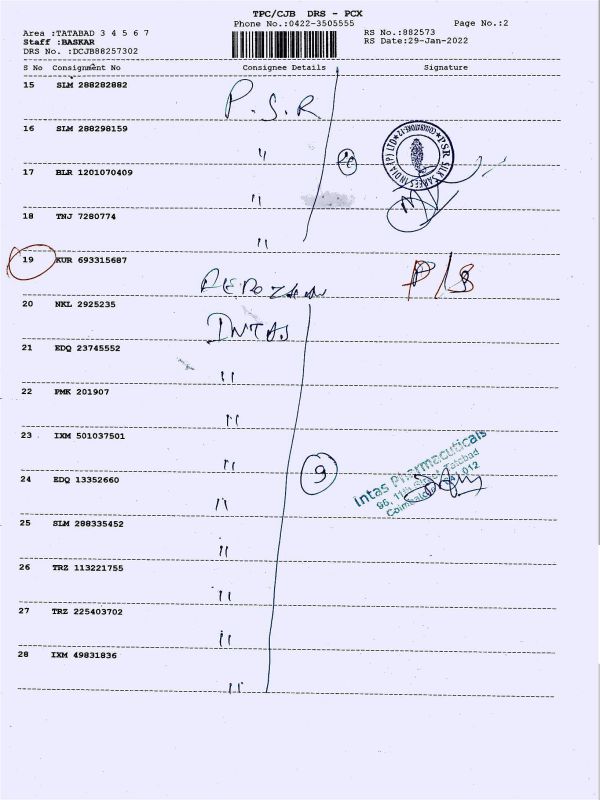 TPC/CJB DRS - PCX
Phone No.:0422-3505555 Page No.:2
Area :TATABAD 3 4 5 6 7 RS No.:882573
Staff :BASKAR RS Date:29-Jan-2022
DRS No. :DCJB88257302
S No Consignment No Consignee Details Signature
15 SLM 288282882 P.S.R
16 SLM 288298159
"
17 BLR 1201070409
"
18 TNJ 7280774
"
PSR SILK SAREES INDIA (P) LTD
19 KUR 693315687
P/S
20 NKL 2925235
INTAS
21 EDQ 23745552
"
22 PMK 201907
"
23 IXM 501037501
"
9
Intas Pharmaceuticals
96, 11th Street Tatabad
24 EDQ 13352660
"
25 SLM 288335452
"
26 TRZ 113221755
"
27 TRZ 225403702
"
28 IXM 49831836
"